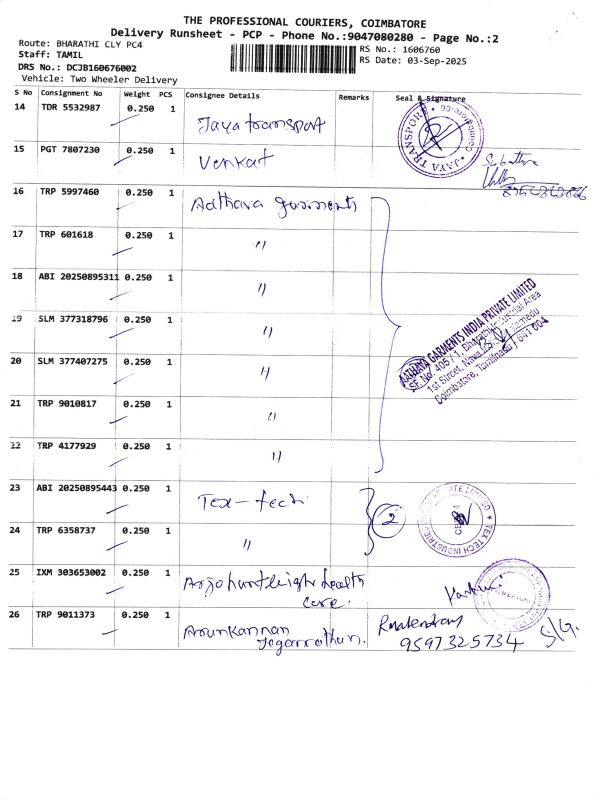 THE PROFESSIONAL COURIERS, COIMBATORE
Delivery Runsheet - PCP - Phone No.:9047080280 - Page No.:2
Route: BHARATHI CLY PC4
Staff: TAMIL
DRS No.: DCJB160676002
Vehicle: Two Wheeler Delivery
RS No.: 1606760
RS Date: 03-Sep-2025
S No Consignment No Weight PCS Consignee Details Remarks Seal & Signature
14 TDR 5532987 0.250 1 Jaya transport
JAYA TRANSPORT
15 PGT 7807230 0.250 1 Venkat
16 TRP 5997460 0.250 1 Aathava garments
17 TRP 601618 0.250 1 "
18 ABI 20250895311 0.250 1 "
19 SLM 377318796 0.250 1 "
AATHAVA GARMENTS INDIA PRIVATE LIMITED
SF. No. 405 / 1, Bharathi Industrial Area
1st Street, Nava
Coimbatore, Tamilnadu - 641 004
20 SLM 377407275 0.250 1 "
21 TRP 9010817 0.250 1 "
22 TRP 4177929 0.250 1 "
23 ABI 20250895443 0.250 1 Tex-tech
2
TEX TECH INDUSTRIES
PRIVATE LIMITED
24 TRP 6358737 0.250 1 "
25 IXM 303653002 0.250 1 Arjohuntleigh health
care.
26 TRP 9011373 0.250 1 Arunkannan
9597325734